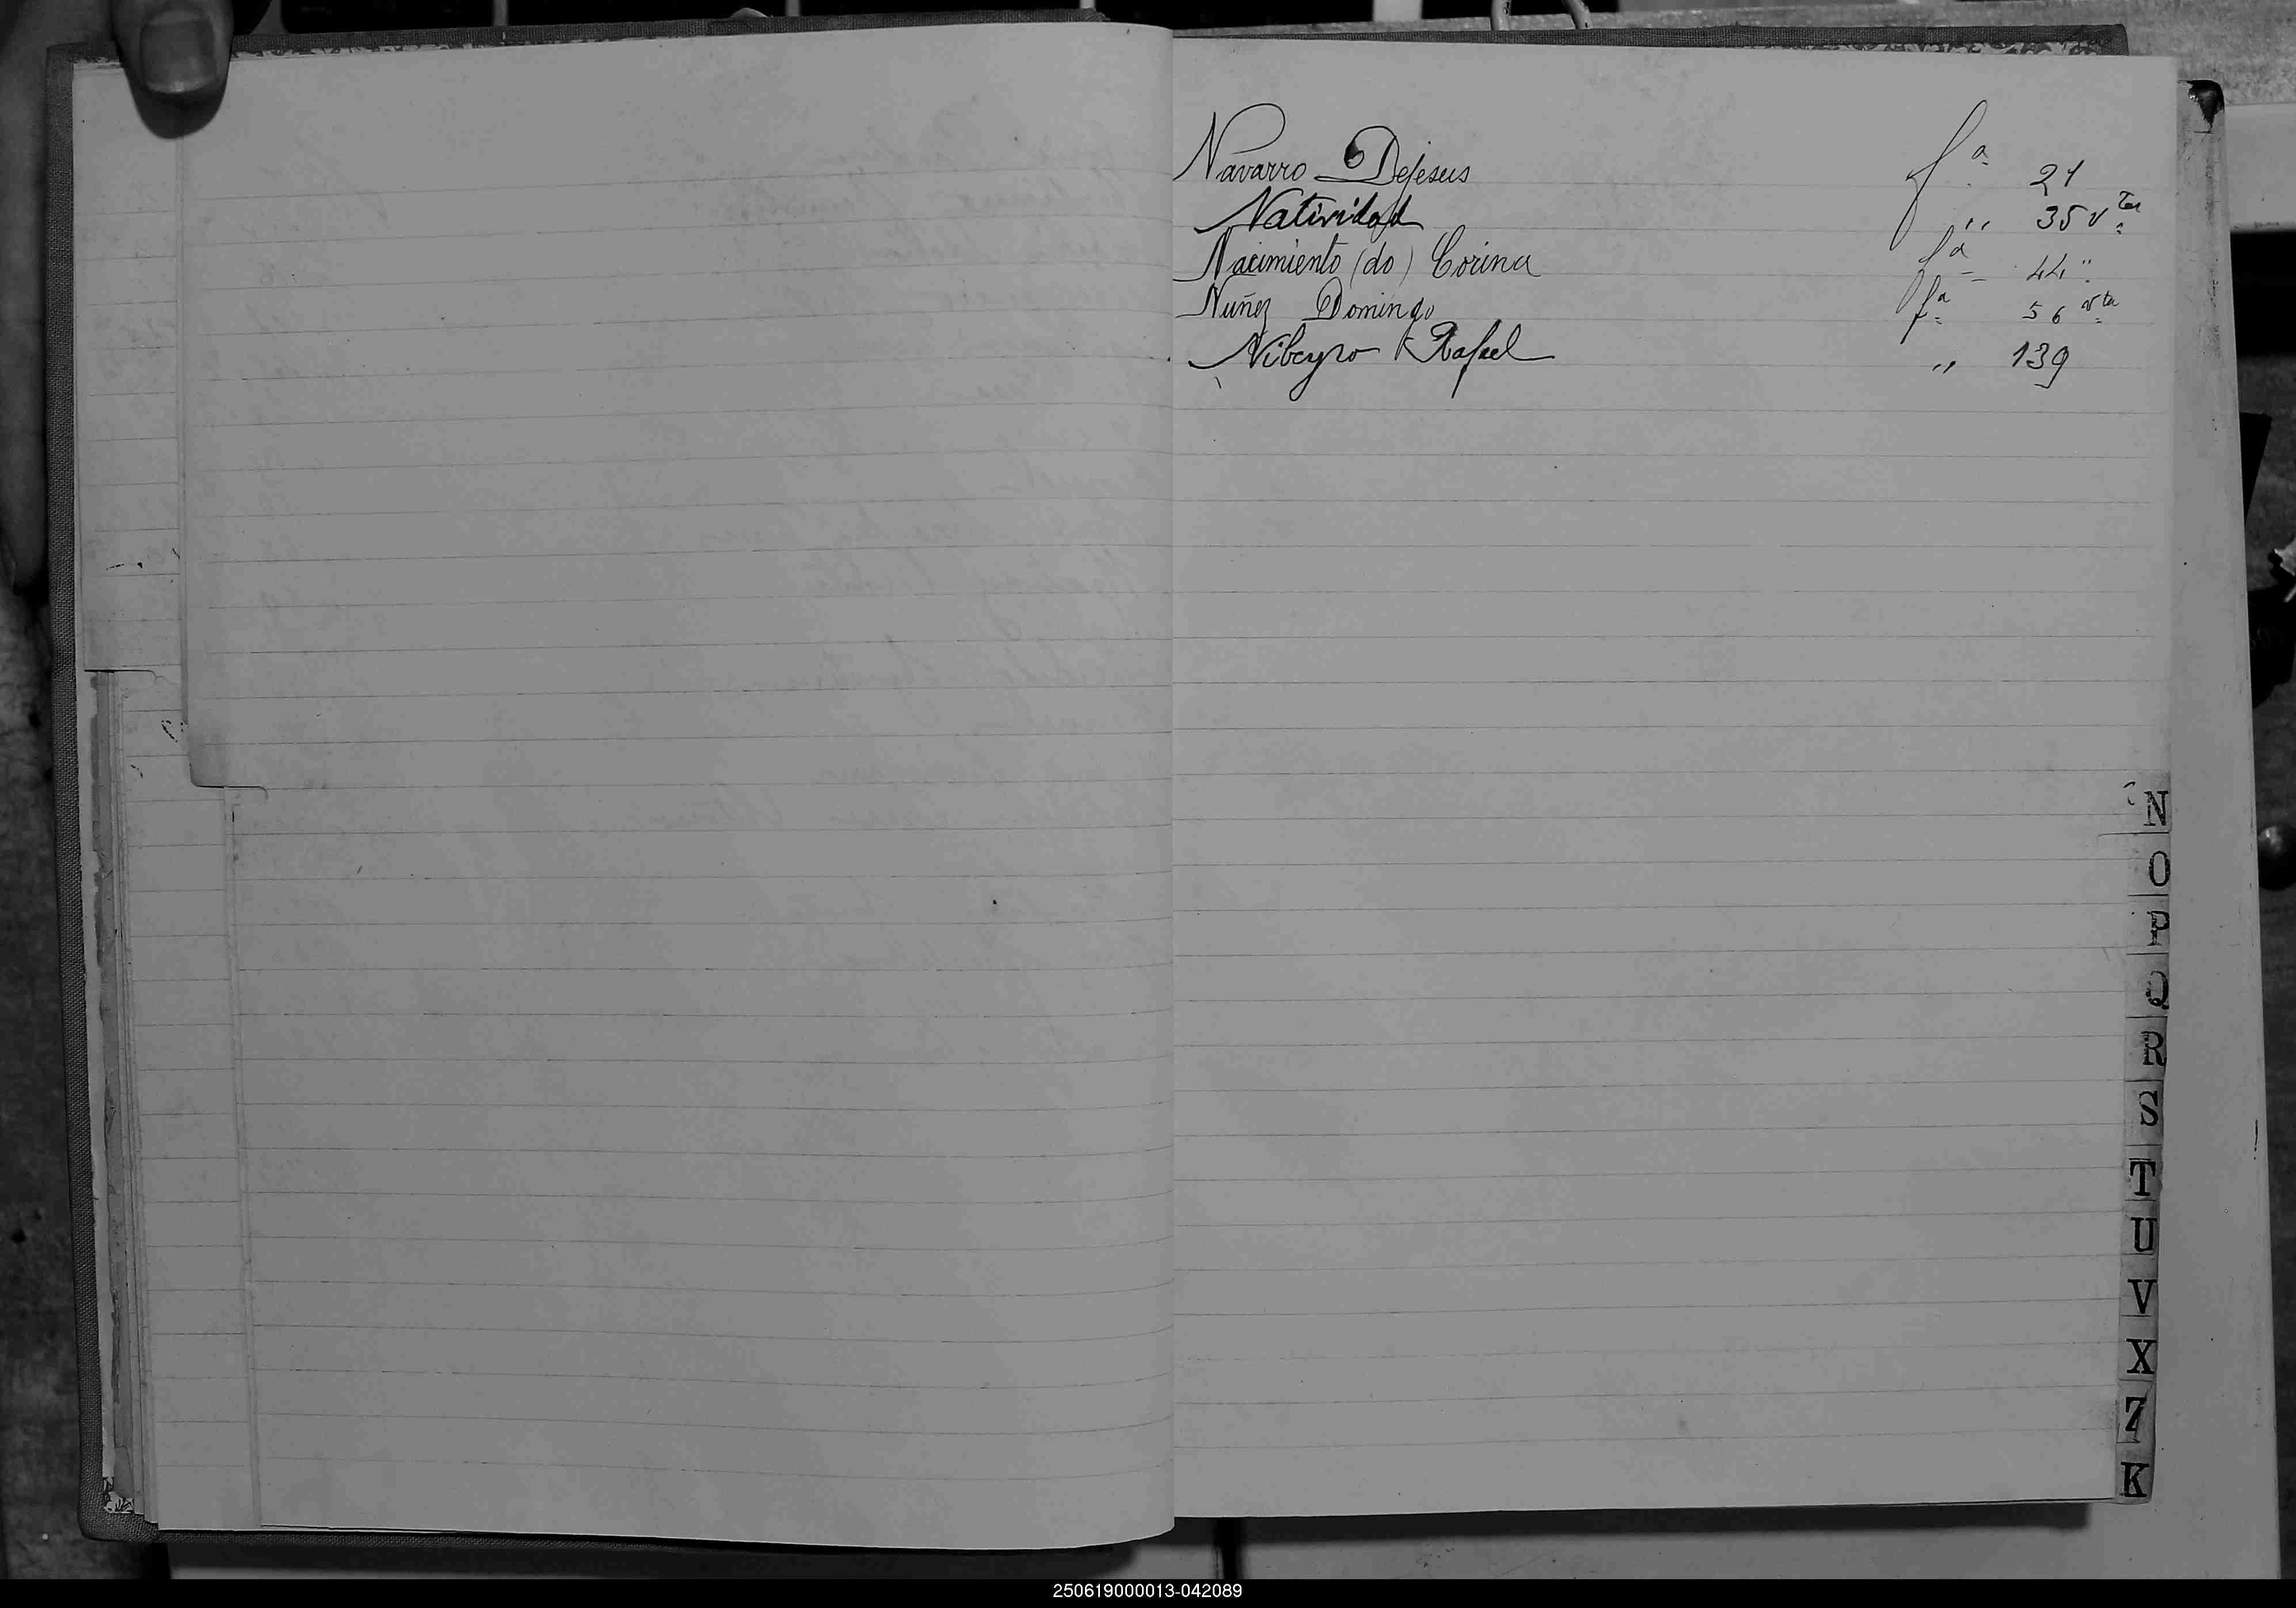 Navarro Dejesus fª 21
Natividad " 35 vta
Nacimiento (do) Corina fª 44 "
Nuñez Domingo fª 56 vta
Nibeyro Rafael " 139
N
O
P
Q
R
S
T
U
V
X
Z
K
250619000013-042089